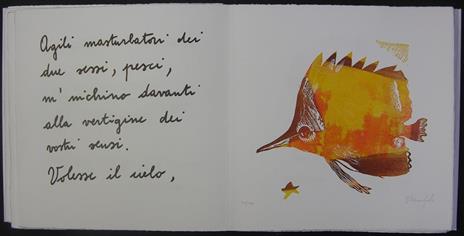 Agili masturbatori dei
due sessi, pesci,
m'inchino davanti
alla vertigine dei
vostri sensi.
Volesse il cielo,